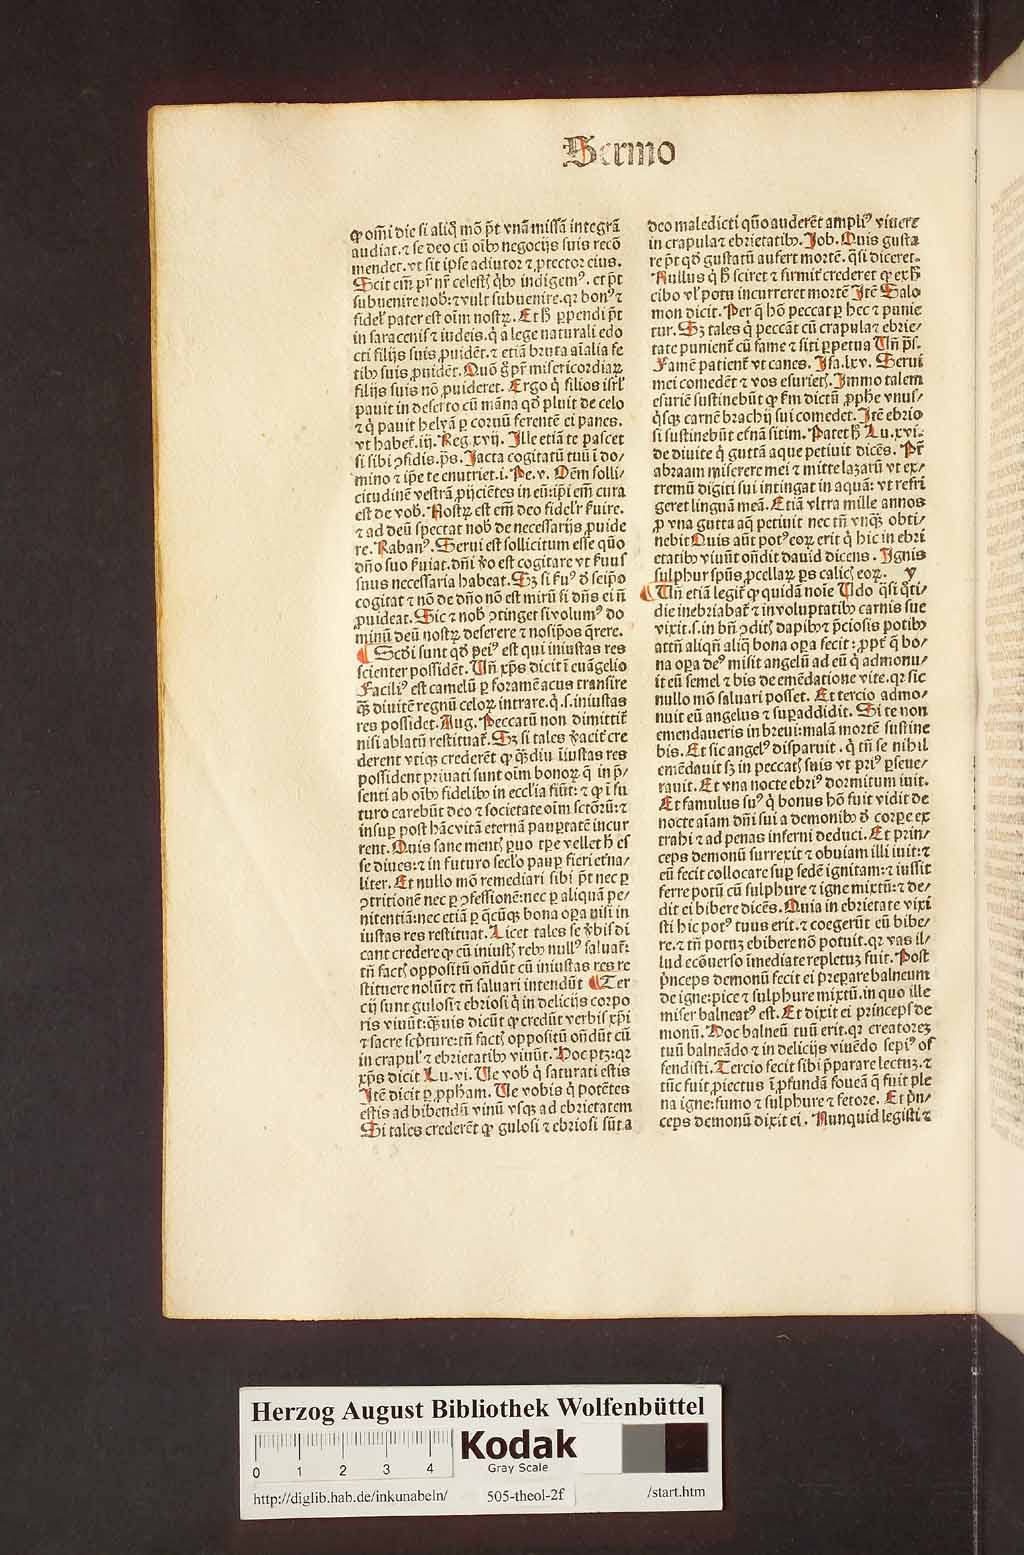 Sermo
ꝙ om̄i die si aliq̊ mō p̄t vnā missā integrā
audiat. ⁊ se deo cū oībꝰ negocijs suis recō
mendet. vt sit ip̄se adiutor ⁊ ꝓtector eius.
Scit em̄ pr̄ nr̄ celestꝭ q̇bꝰ indigemꝰ. et p̄t
subuenire nob̄: ⁊ vult subuenire. qꝛ bonꝰ ⁊
fidel̓ pater est oīm nostrꝝ. Et h̄ ꝑpendi p̄t
in saracenis ⁊ iudeis. q̇ a lege naturali edo
cti filijs suis ꝓuidēt. ⁊ etiā bruta aīalia fe
tibꝰ suis ꝓuidēt. Quō g̊ pr̄ misericordiaꝝ
filijs suis nō ꝓuideret. Ergo q̇ filios isrl̓
pauit in deserto cū māna qd̓ pluit de celo
⁊ q̇ pauit helyā ꝑ coruū ferentē ei panes.
vt habet̄. iij. Reg. xvij. Ille etiā te pascet
si sibi ꝯfidis. p̄s. Iacta cogitatū tuū ī do/
mino ⁊ ip̄e te enutriet. i. Pe. v. Oēm solli/
citudinē vestrā ꝓijciētes in eū: ip̄i em̄ cura
est de vob̄. Nostrꝝ est em̄ deo fidel̓r ẜuire.
⁊ ad deū spectat nob̄ de necessarijs ꝓuide
re. Rabanꝰ. Serui est sollicitum esse quō
dn̄o suo ẜuiat. dn̄i v̓o est cogitare vt ẜuus
suus necessaria habeat. Sꝫ si ẜuꝰ d̓ seip̄o
cogitat ⁊ nō de dn̄o nō est mirū si dn̄s ei n̄
ꝓuideat. Sic ⁊ nob̄ ꝯtinget si volumꝰ do
minū deū nostrꝝ deserere ⁊ nosip̄os q̄rere.
¶ Scd̓i sunt qd̓ peiꝰ est qui iniustas res
scienter possidēt. Vn̄ xp̄s dicit ī euāgelio
Faciliꝰ est camelū ꝑ foramē acus transire
q̄ꝫ diuitē regnū celoꝝ intrare. q̇. s. iniustas
res possidet. Aug. Peccatū non dimittit̄
nisi ablatū restituat̄. Sꝫ si tales v̓acit̄ cre
derent vtiqꝫ crederēt ꝙ q̄ꝫdiu īiustas res
possident priuati sunt oīm bonoꝝ q̄ in p̄/
senti ab oībꝰ fidelibꝰ in eccl̓ia fiūt: ⁊ ꝙ ī fu
turo carebūt deo ⁊ societate oīm sctōꝝ: ⁊
insuꝑ post hāc vitā eternā pauꝑtatē incur
rent. Quis sane mentꝭ ꝑuo tꝑe vellet h̄ es
se diues: ⁊ in futuro secl̓o pauꝑ fieri et̓na/
liter. Et nullo mō remediari sibi p̄t nec ꝑ
ꝯtritionē nec ꝑ ꝯfessionē: nec ꝑ aliquā pe/
nitentiā: nec etiā ꝑ q̄cūqꝫ bona oꝑa nisi in
iustas res restituat. Licet tales se v̓bis di
cant credere ꝙ cū iniustꝭ rebꝰ nullꝰ saluat̄:
tn̄ factꝭ oppositū on̄dūt cū iniustas res re
stituere nolūt ⁊ tn̄ saluari intendūt ¶ Ter
cij sunt gulosi ⁊ ebriosi q̇ in delicijs corpo
ris viuūt: q̄ꝫuis dicūt ꝙ credūt verbis xp̄i
⁊ sacre scp̄ture: tn̄ factꝭ oppositū on̄dūt cū
in crapul̓ ⁊ ebrietatibꝰ viuūt. Hoc ptꝫ: qꝛ
xp̄s dicit Lu. vi. Ve vob̄ q̇ saturati estis
Itē dicit ꝑ ꝓpham. Ve vobis q̇ potētes
estis ad bibendū vinū vsqꝫ ad ebrietatem
Si tales crederēt ꝙ gulosi ⁊ ebriosi sūt a
deo maledicti quō auderēt ampliꝰ viuere
in crapula ⁊ ebrietatibꝰ. Job. Quis gusta
re p̄t qd̓ gustatū aufert mortē. q̄si diceret.
Nullus q̇ h̄ sciret ⁊ firmit̄ crederet ꝙ ex h̄
cibo vl̓ potu incurreret mortē Itē Salo
mon dicit. Per q̄ hō peccat ꝑ hec ⁊ punie
tur. Sꝫ tales q̇ peccāt cū crapula ⁊ ebrie/
tate punient̄ cū fame ⁊ siti ꝑpetua Vn̄ p̄s.
Famē patient̄ vt canes. Isa. lxv. Serui
mei comedēt ⁊ vos esurietꝭ. Immo talem
esuriē sustinebūt ꝙ ẜm dictū ꝓphe vnus/
q̇sqꝫ carnē brachij sui comedet. Itē ebrio
si sustinebūt et̓nā sitim. Patet h̄ Lu. xvi.
de diuite q̇ guttā aque petiuit dicēs. Pr̄
abraam miserere mei ⁊ mitte lazarū vt ex/
tremū digiti sui intingat in aquā: vt refri
geret linguā meā. Etiā vltra mille annos
ꝓ vna gutta aq̄ petiuit nec tn̄ vnqꝫ obti/
nebit Quis aūt potꝰ eoꝝ erit q̇ hic in ebri
etatibꝰ viuūt on̄dit dauid dicens. Ignis
sulphur spūs ꝓcellaꝝ ꝑs calicꝭ eoꝝ. v
¶ Vn̄ etiā legit̄ ꝙ quidā noīe Vdo q̄si q̊ti/
die inebriabat̄ ⁊ in voluptatibꝰ carnis sue
vixit. s. in bn̄ ꝯditꝭ dapibꝰ ⁊ p̄ciosis potibꝰ
attn̄ aliqn̄ aliq̄ bona oꝑa fecit: ꝓpt̓ q̄ bo/
na oꝑa deꝰ misit angelū ad eū q̇ admonu/
it eū semel ⁊ bis de emēdatione vite. qꝛ sic
nullo mō saluari posset. Et tercio admo/
nuit eū angelus ⁊ suꝑaddidit. Si te non
emendaueris in breui: malā mortē sustine
bis. Et sic angelꝰ disparuit. q̇ tn̄ se nihil
emēdauit sꝫ in peccatꝭ suis vt priꝰ ꝑseue/
rauit. Et vna nocte ebriꝰ dormitum iuit.
Et famulus suꝰ q̇ bonus hō fuit vidit de
nocte aīam dn̄i sui a demonibꝰ d̓ corꝑe ex
trahi ⁊ ad penas inferni deduci. Et prin/
ceps demonū surrexit ⁊ obuiam illi iuit: ⁊
eū fecit collocare suꝑ sedē ignitam: ⁊ iussit
ferre potū cū sulphure ⁊ igne mixtū: ⁊ de/
dit ei bibere dicēs. Quia in ebrietate vixi
sti hic potꝰ tuus erit. ⁊ coegerūt eū bibe/
re. ⁊ tn̄ potuꝫ ebibere nō potuit. qꝛ vas il/
lud ecōuerso īmediate repletuꝫ fuit. Post
p̓nceps demonū fecit ei p̄parare balneum
de igne: pice ⁊ sulphure mixtū. in quo ille
miser balneatꝰ est. Et dixit ei princeps de
monū. Hoc balneū tuū erit. qꝛ creatoreꝫ
tuū balneādo ⁊ in delicijs viuēdo sepiꝰ of
fendisti. Tercio fecit sibi p̄parare lectuꝫ. ⁊
tūc fuit ꝓiectus ī ꝓfundā foueā q̄ fuit ple
na igne: fumo ⁊ sulphure ⁊ fetore. Et p̓n/
ceps demonū dixit ei. Nunquid legisti ⁊
Herzog August Bibliothek Wolfenbüttel
0 1 2 3 4
Kodak
Gray Scale
http://diglib.hab.de/inkunabeln/ 505-theol-2f /start.htm